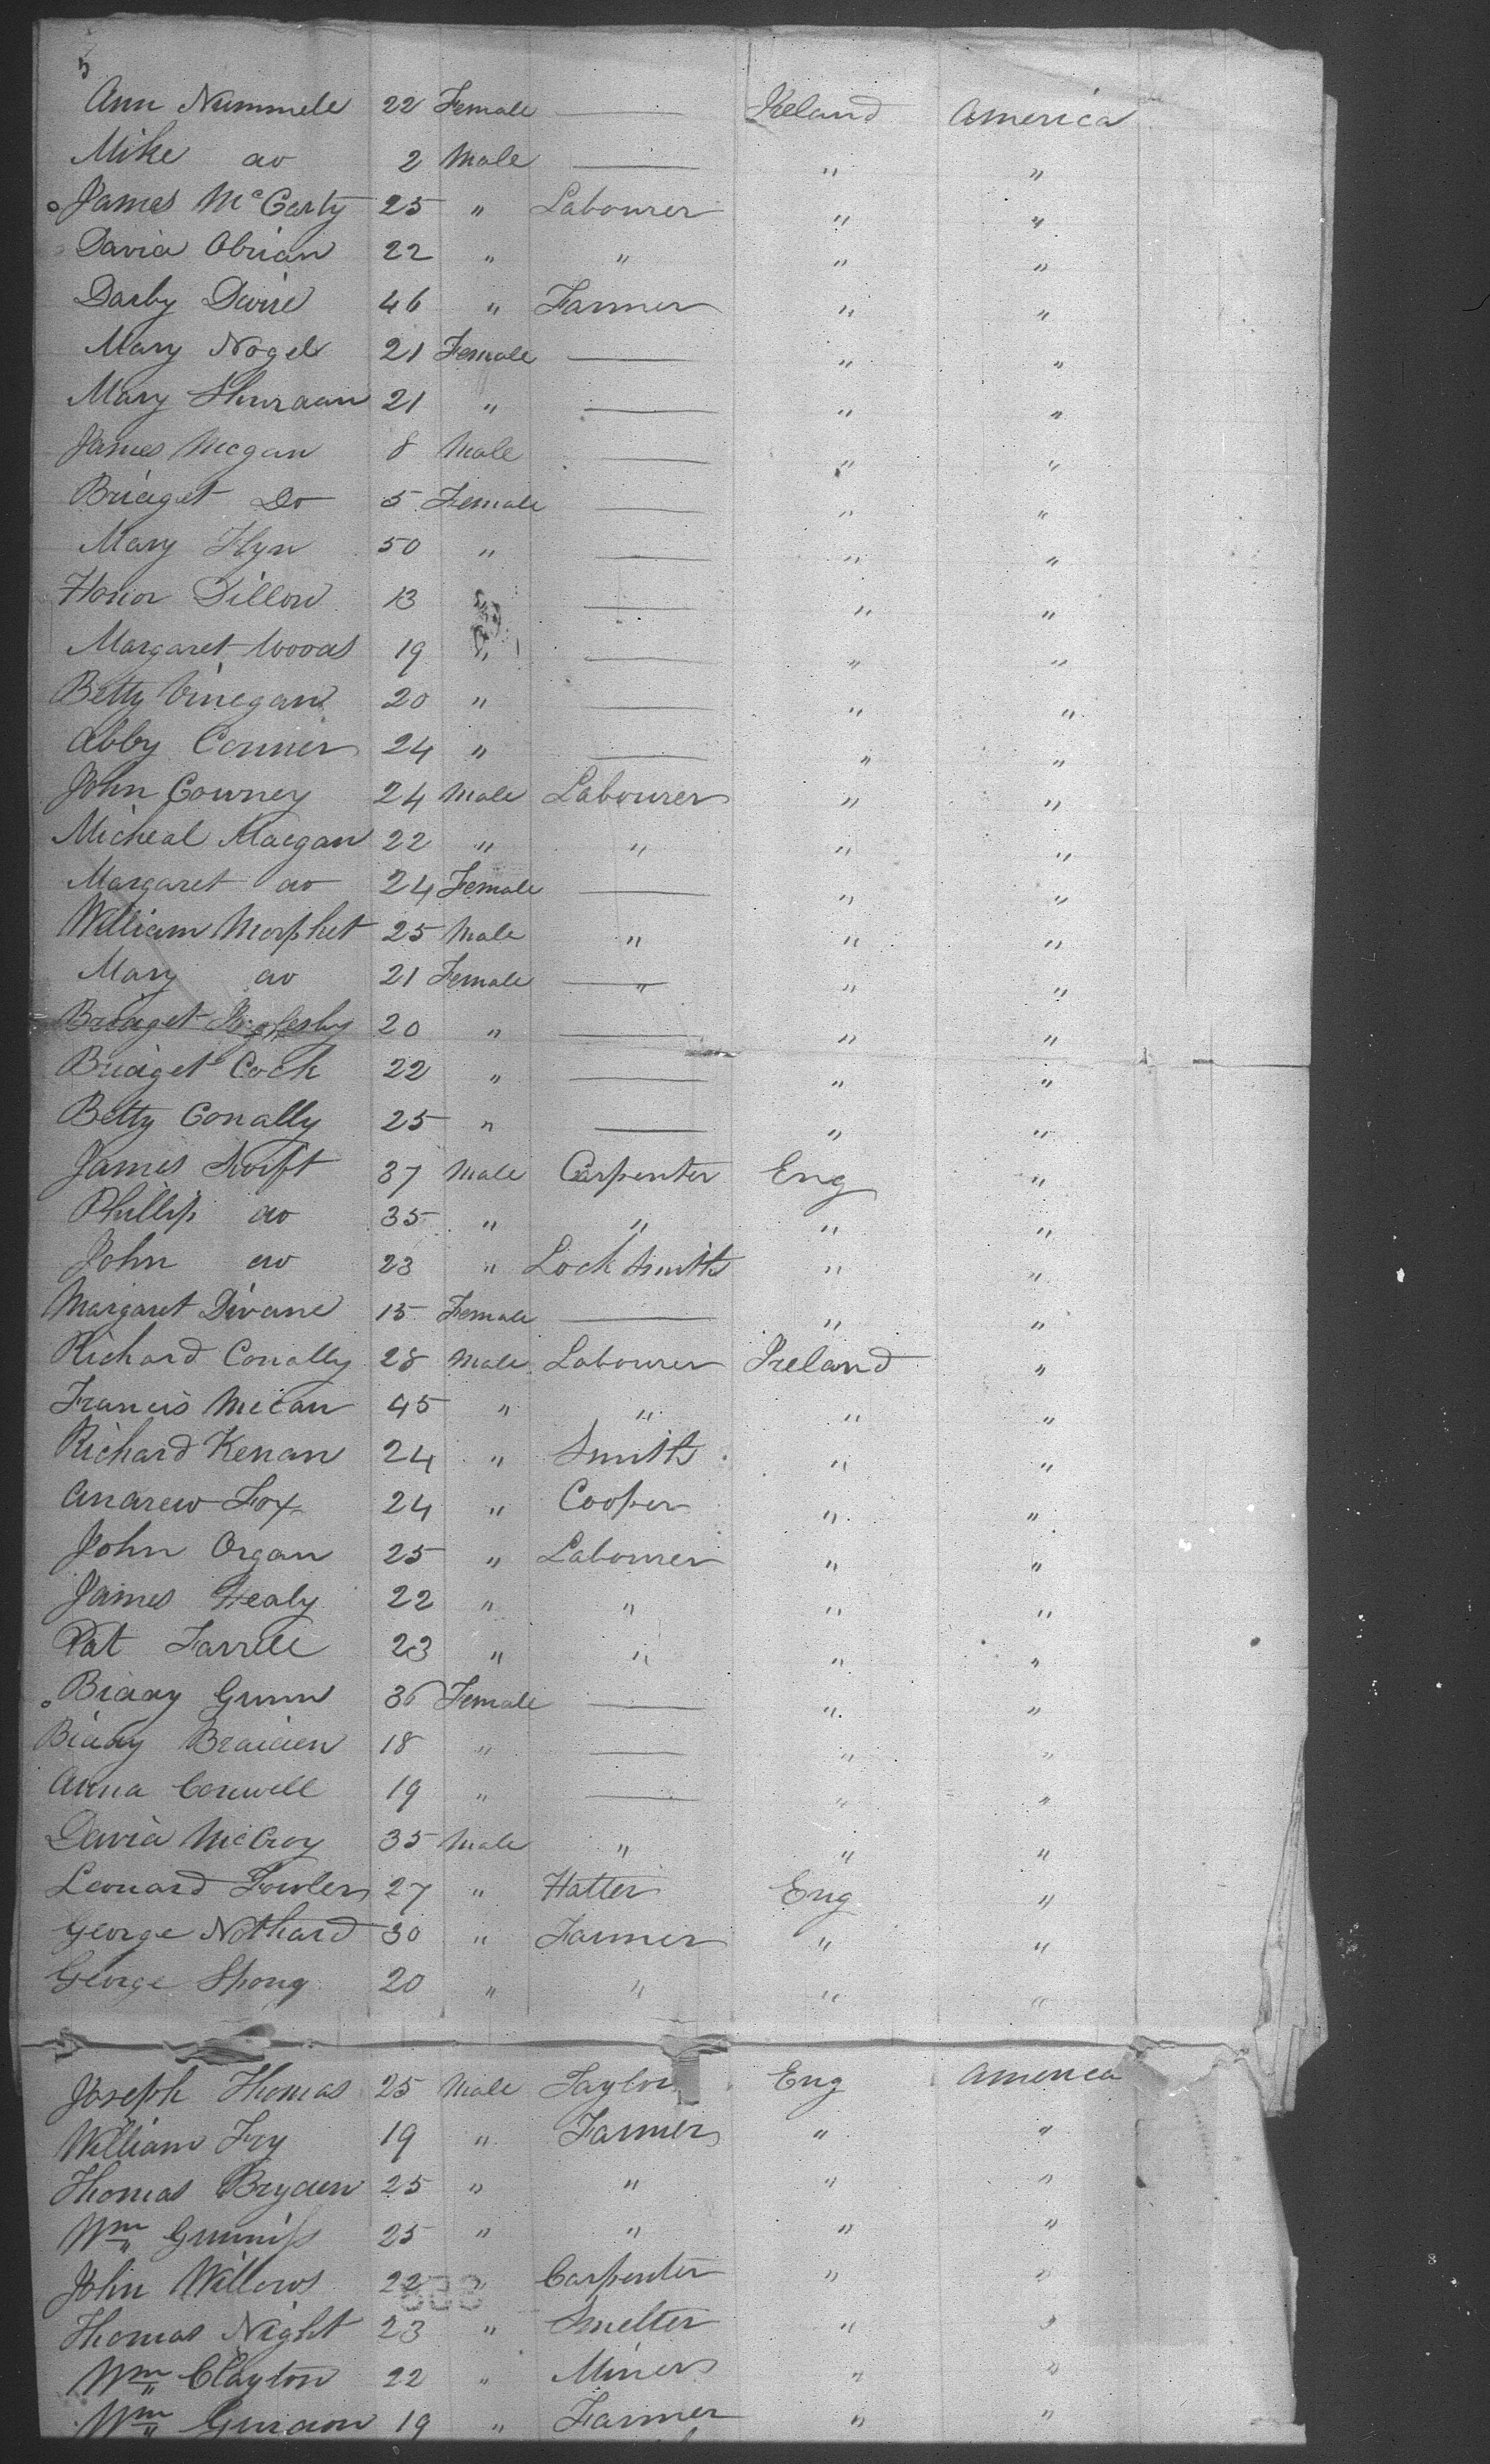 5
Ann Nummele 22 Female — Ireland America
Mike do 2 Male — " "
James McCarty 25 " Labourer " "
David Obrian 22 " " " "
Darby Dwire 46 " Farmer " "
Mary Nogel 21 Female — " "
Mary 21 " — " "
James Mcgan 8 Male — " "
Bridget Do 5 Female — " "
Mary Flyn 50 " — " "
Honor Dillon 13 " — " "
Margaret Woods 19 " — " "
Betty Vinegan 20 " — " "
Abby Conner 24 " — " "
John Cowney 24 Male Labourer " "
Micheal Maegan 22 " " " "
Margaret do 24 Female — " "
William Morphet 25 Male " " "
Mary do 21 Female — " " "
Bridget 20 " — " "
Bridget Cock 22 " — " "
Betty Conally 25 " — " "
James Swift 37 Male Carpenter Eng "
Phillip do 35 " " " "
John do 23 " Lock Smith " "
Margaret Divane 15 Female — " "
Richard Conally 28 Male Labourer Ireland "
Francis McCan 45 " " " "
Richard Kenan 24 " Smith " "
Andrew Fox 24 " Cooper " "
John Organ 25 " Labourer " "
James Healy 22 " " " "
Pat Farrell 23 " " " "
Biddy Gunn 36 Female — " "
Biddy Braiden 18 " — " "
Anna Conwell 19 " — " "
David McCroy 35 Male " " "
Leonard Fowler 27 " Hatter Eng "
George Nothard 30 " Farmer " "
George Spong 20 " " " "
Joseph Thomas 25 Male Taylor Eng America
William Fry 19 " Farmer " "
Thomas Bryden 25 " " " "
Wm Gunniss 25 " " " "
John Willows 22 " Carpenter " "
Thomas Night 23 " Smelter " "
Wm Clayton 22 " Miner " "
Wm Guidon 19 " Farmer " "